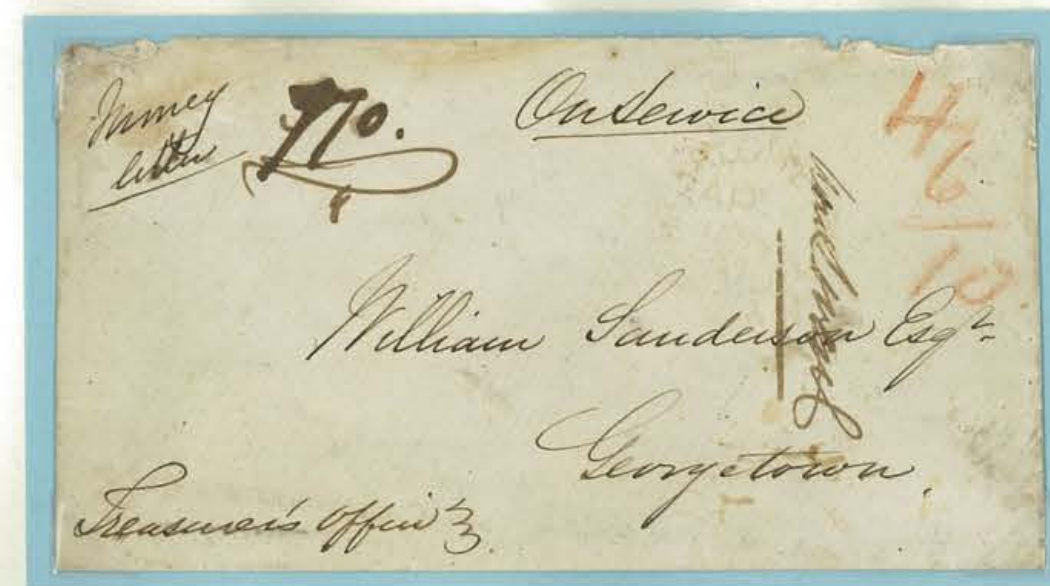 Money
letter
770.
On Service
46
10
William Sanderson Esqr.
Georgetown.
Treasurer's Office